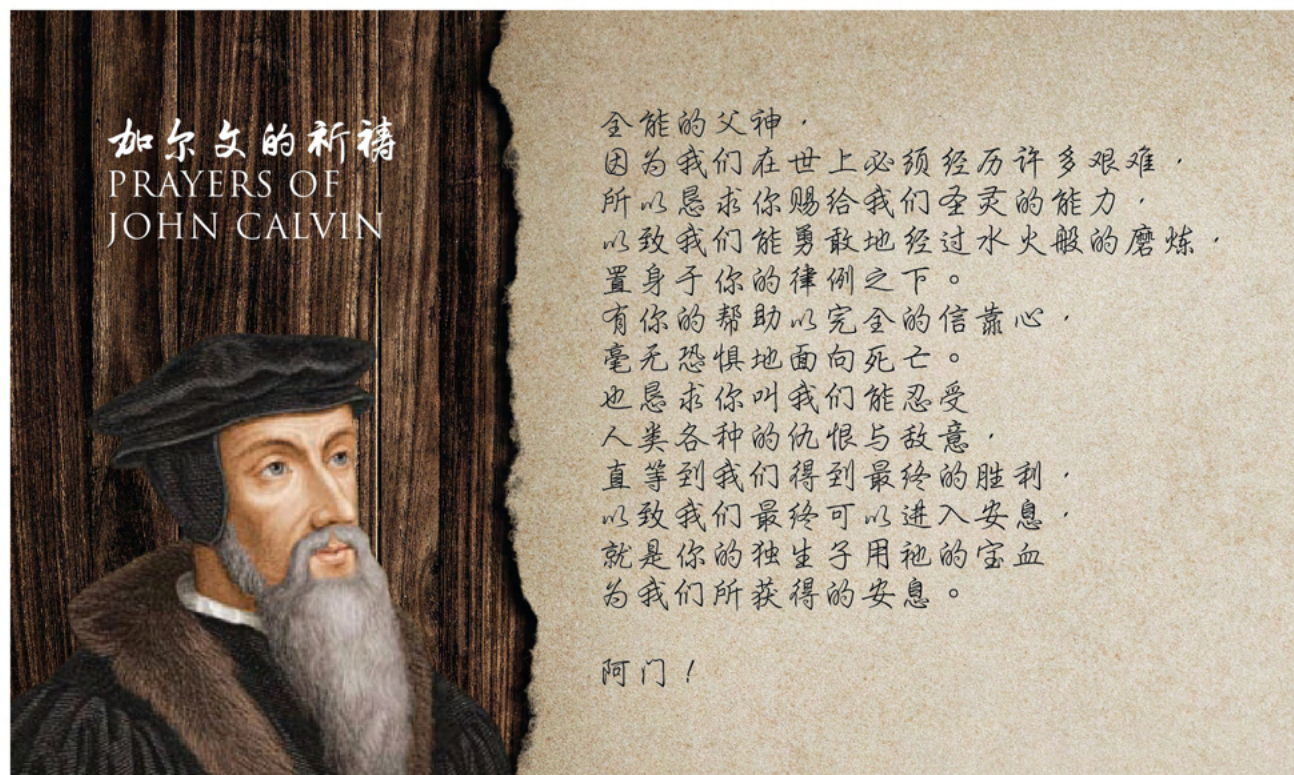 加尔文的祈祷
PRAYERS OF
JOHN CALVIN
全能的父神，
因为我们在世上必须经历许多艰难，
所以恳求你赐给我们圣灵的能力，
以致我们能勇敢地经过水火般的磨炼，
置身于你的律例之下。
有你的帮助以完全的信靠心，
毫无恐惧地面向死亡。
也恳求你叫我们能忍受
人类各种的仇恨与敌意，
直等到我们得到最终的胜利，
以致我们最终可以进入安息，
就是你的独生子用祂的宝血
为我们所获得的安息。
阿门！